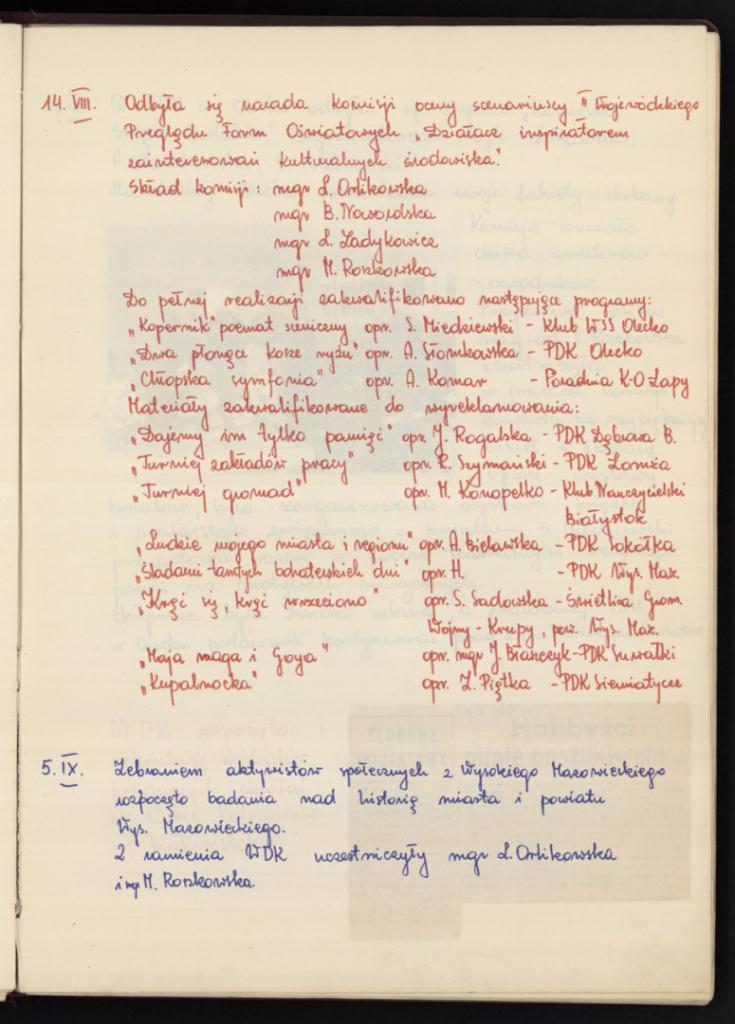 14. VIII. Odbyła się narada komisji oceny scenariuszy II Wojewódzkiego
Przeglądu Form Oświatowych „Działacz inspiratorem
zainteresowań kulturalnych środowiska".
Skład komisji: mgr L. Orlikowska
mgr B. Nawrodzka
mgr L. Ladykowicz
mgr M. Roszkowska
Do pełnej realizacji zakwalifikowano następujące programy:
„Kopernik" poemat sceniczny opr. S. Miedziewski - Klub WSS Olecko
„Dwa płonące korze ryżu" opr. A. Słomkowska - PDK Olecko
„Chłopska symfonia" opr. A. Komar - Poradnia K-O Łapy
Materiały zakwalifikowane do wyreklamowania:
„Dajemy im tylko pamięć" opr. J. Rogalska - PDK Dąbrowa B.
„Turniej zakładów pracy" opr. R. Szymański - PDK Łomża
„Turniej gromad" opr. M. Konopelko - Klub Nauczycielski
Białystok
„Ludzie mojego miasta i regionu" opr. A. Bielawska - PDK Sokółka
„Śladami tamtych bohaterskich dni" opr. H. - PDK Wys. Maz.
„Kręć się, kręć wrzeciono" opr. S. Sadowska - Świetlica Grom.
Wojny - Krupy, pow. Wys. Maz.
„Maja naga i Goya" opr. mgr J. - PDK Suwałki
„Kupalnocka" opr. Z. Piątka - PDK Siemiatycze
5. IX. Zebraniem aktywistów społecznych z Wysokiego Mazowieckiego
rozpoczęto badania nad historią miasta i powiatu
Wys. Mazowieckiego.
Z ramienia WDK uczestniczyły mgr L. Orlikowska
i mgr M. Roszkowska.